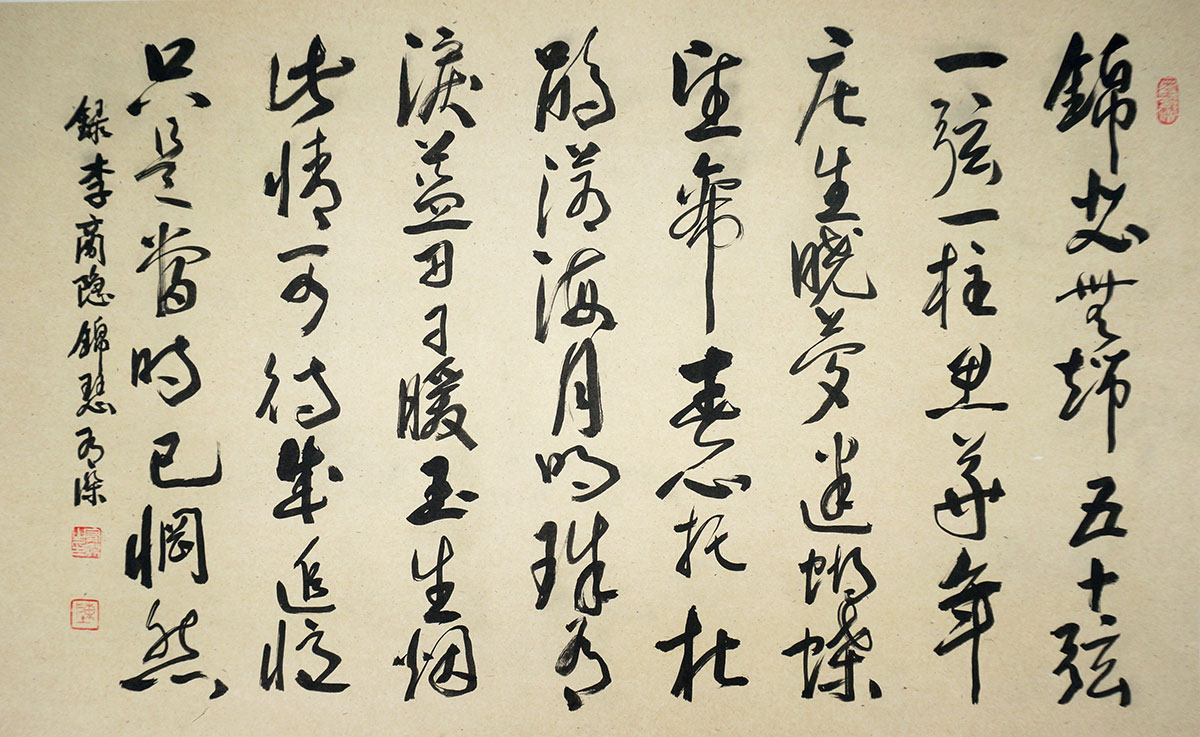 錦瑟無端五十弦
一弦一柱思華年
庄生曉夢迷蝴蝶
望帝春心托杜
鵑滄海月明珠有
淚藍田日暖玉生烟
此情可待成追憶
只是當時已惘然
録李商隐錦瑟有